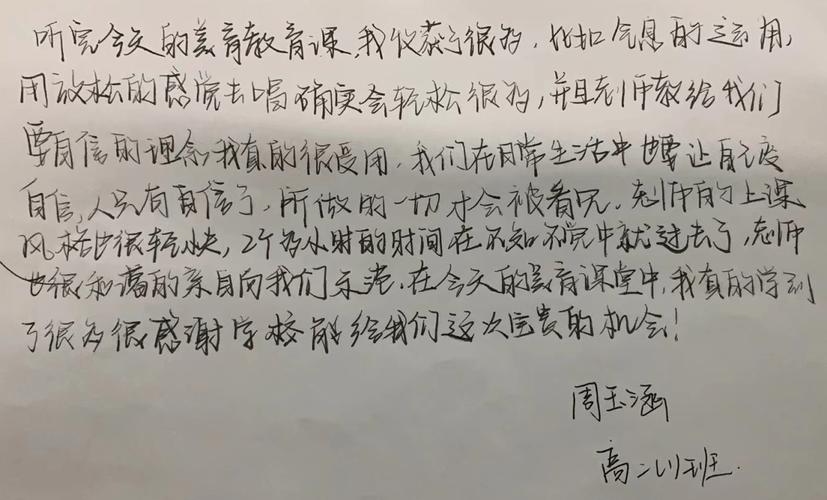 听完今天的美育教育课,我收获了很多,比如气息的运用,
用放松的感觉去唱确实会轻松很多,并且老师教给我们
要自信的理念,我真的很受用,我们在日常生活中也要让自己变
自信,人只有自信了,所做的一切才会被看见.老师的上课
风格也很轻快,2个多小时的时间在不知不觉中就过去了,老师
也很和蔼的亲自向我们示范.在今天的美育课堂中,我真的学到
了很多很感谢学校能给我们这次宝贵的机会!
周玉涵
高二班.